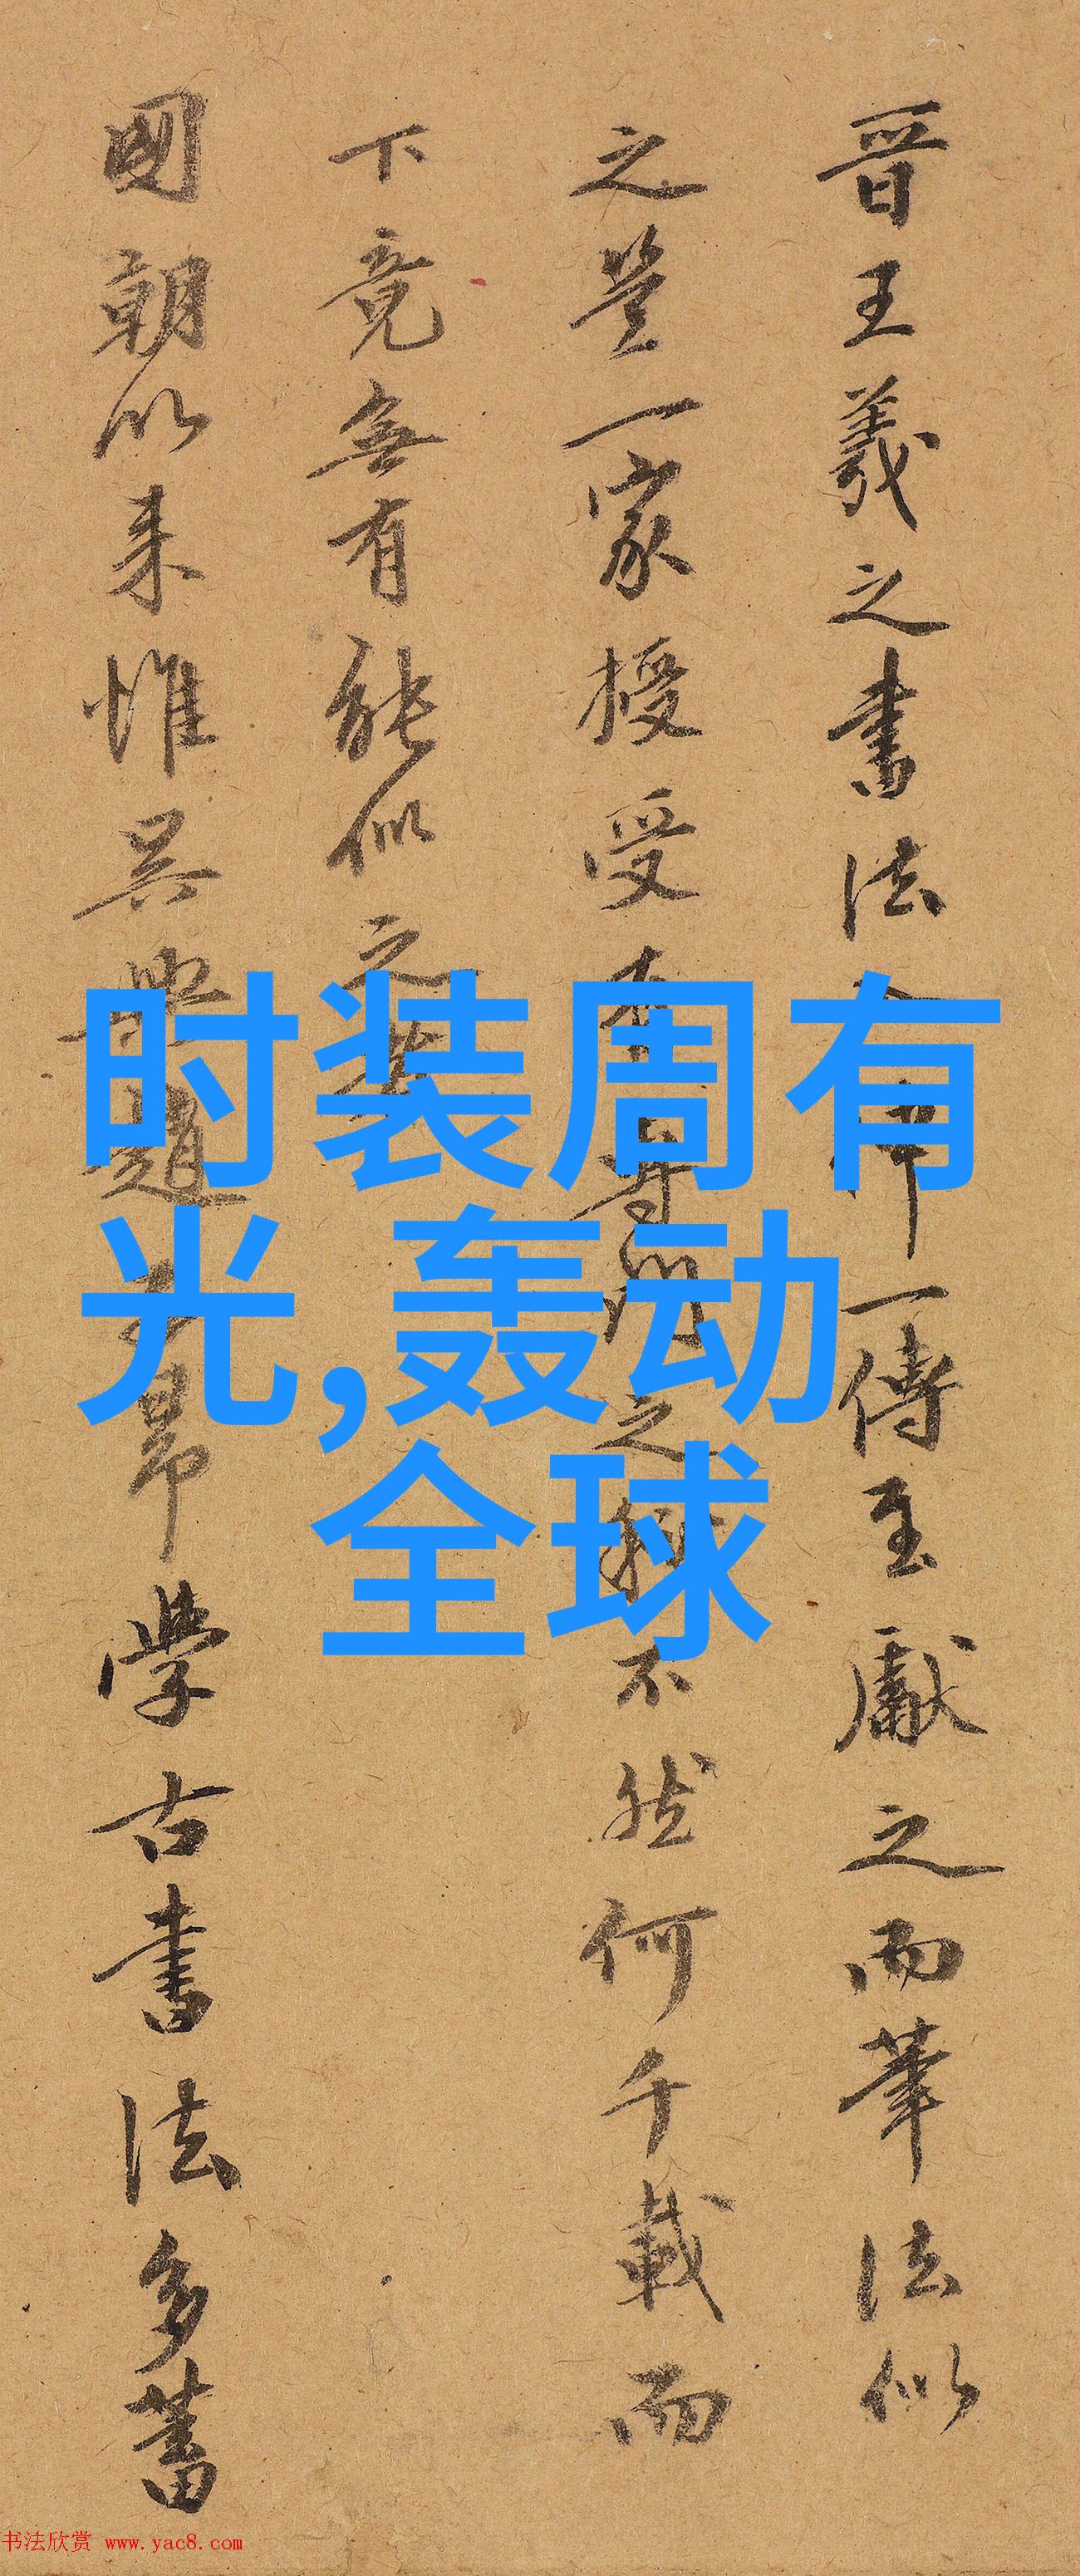 晋王羲之書法
一傳至獻之而筆法似
之豈一家授受
之
不然何千載而
下竟無有能似之
國朝以来惟吳興趙
學古書法多蓄
时装周有
光,轰动
全球
书法欣赏 www.yac8.com